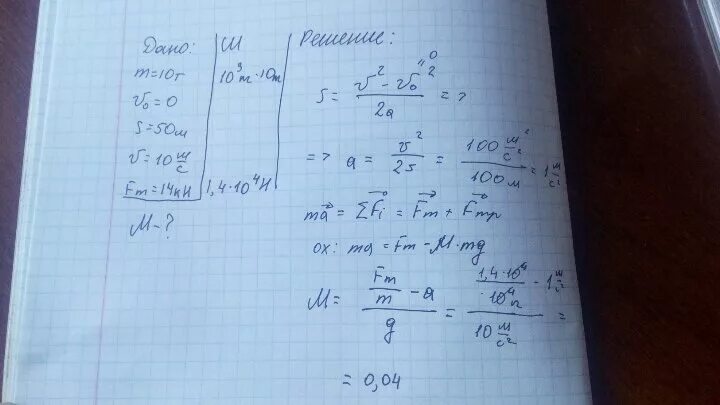 Дано:
m=10т
v₀=0
S=50м
v=10 м/с
Fт=14кН
M-?
СИ
10³m·10m
1,4·10⁴Н
Решение:
S = (v² - v₀²)/2a => 
"0
=> a = v²/2s = (100 м²/с²)/(100м) = 1 м/с²
ma⃗ = ΣF⃗i = F⃗т + F⃗тр
ox: ma = Fт - M·mg
M = (Fт/m - a)/g = (1,4·10⁴/·10⁴ - 1 м/с²)/(10 м/с²) =
= 0,04